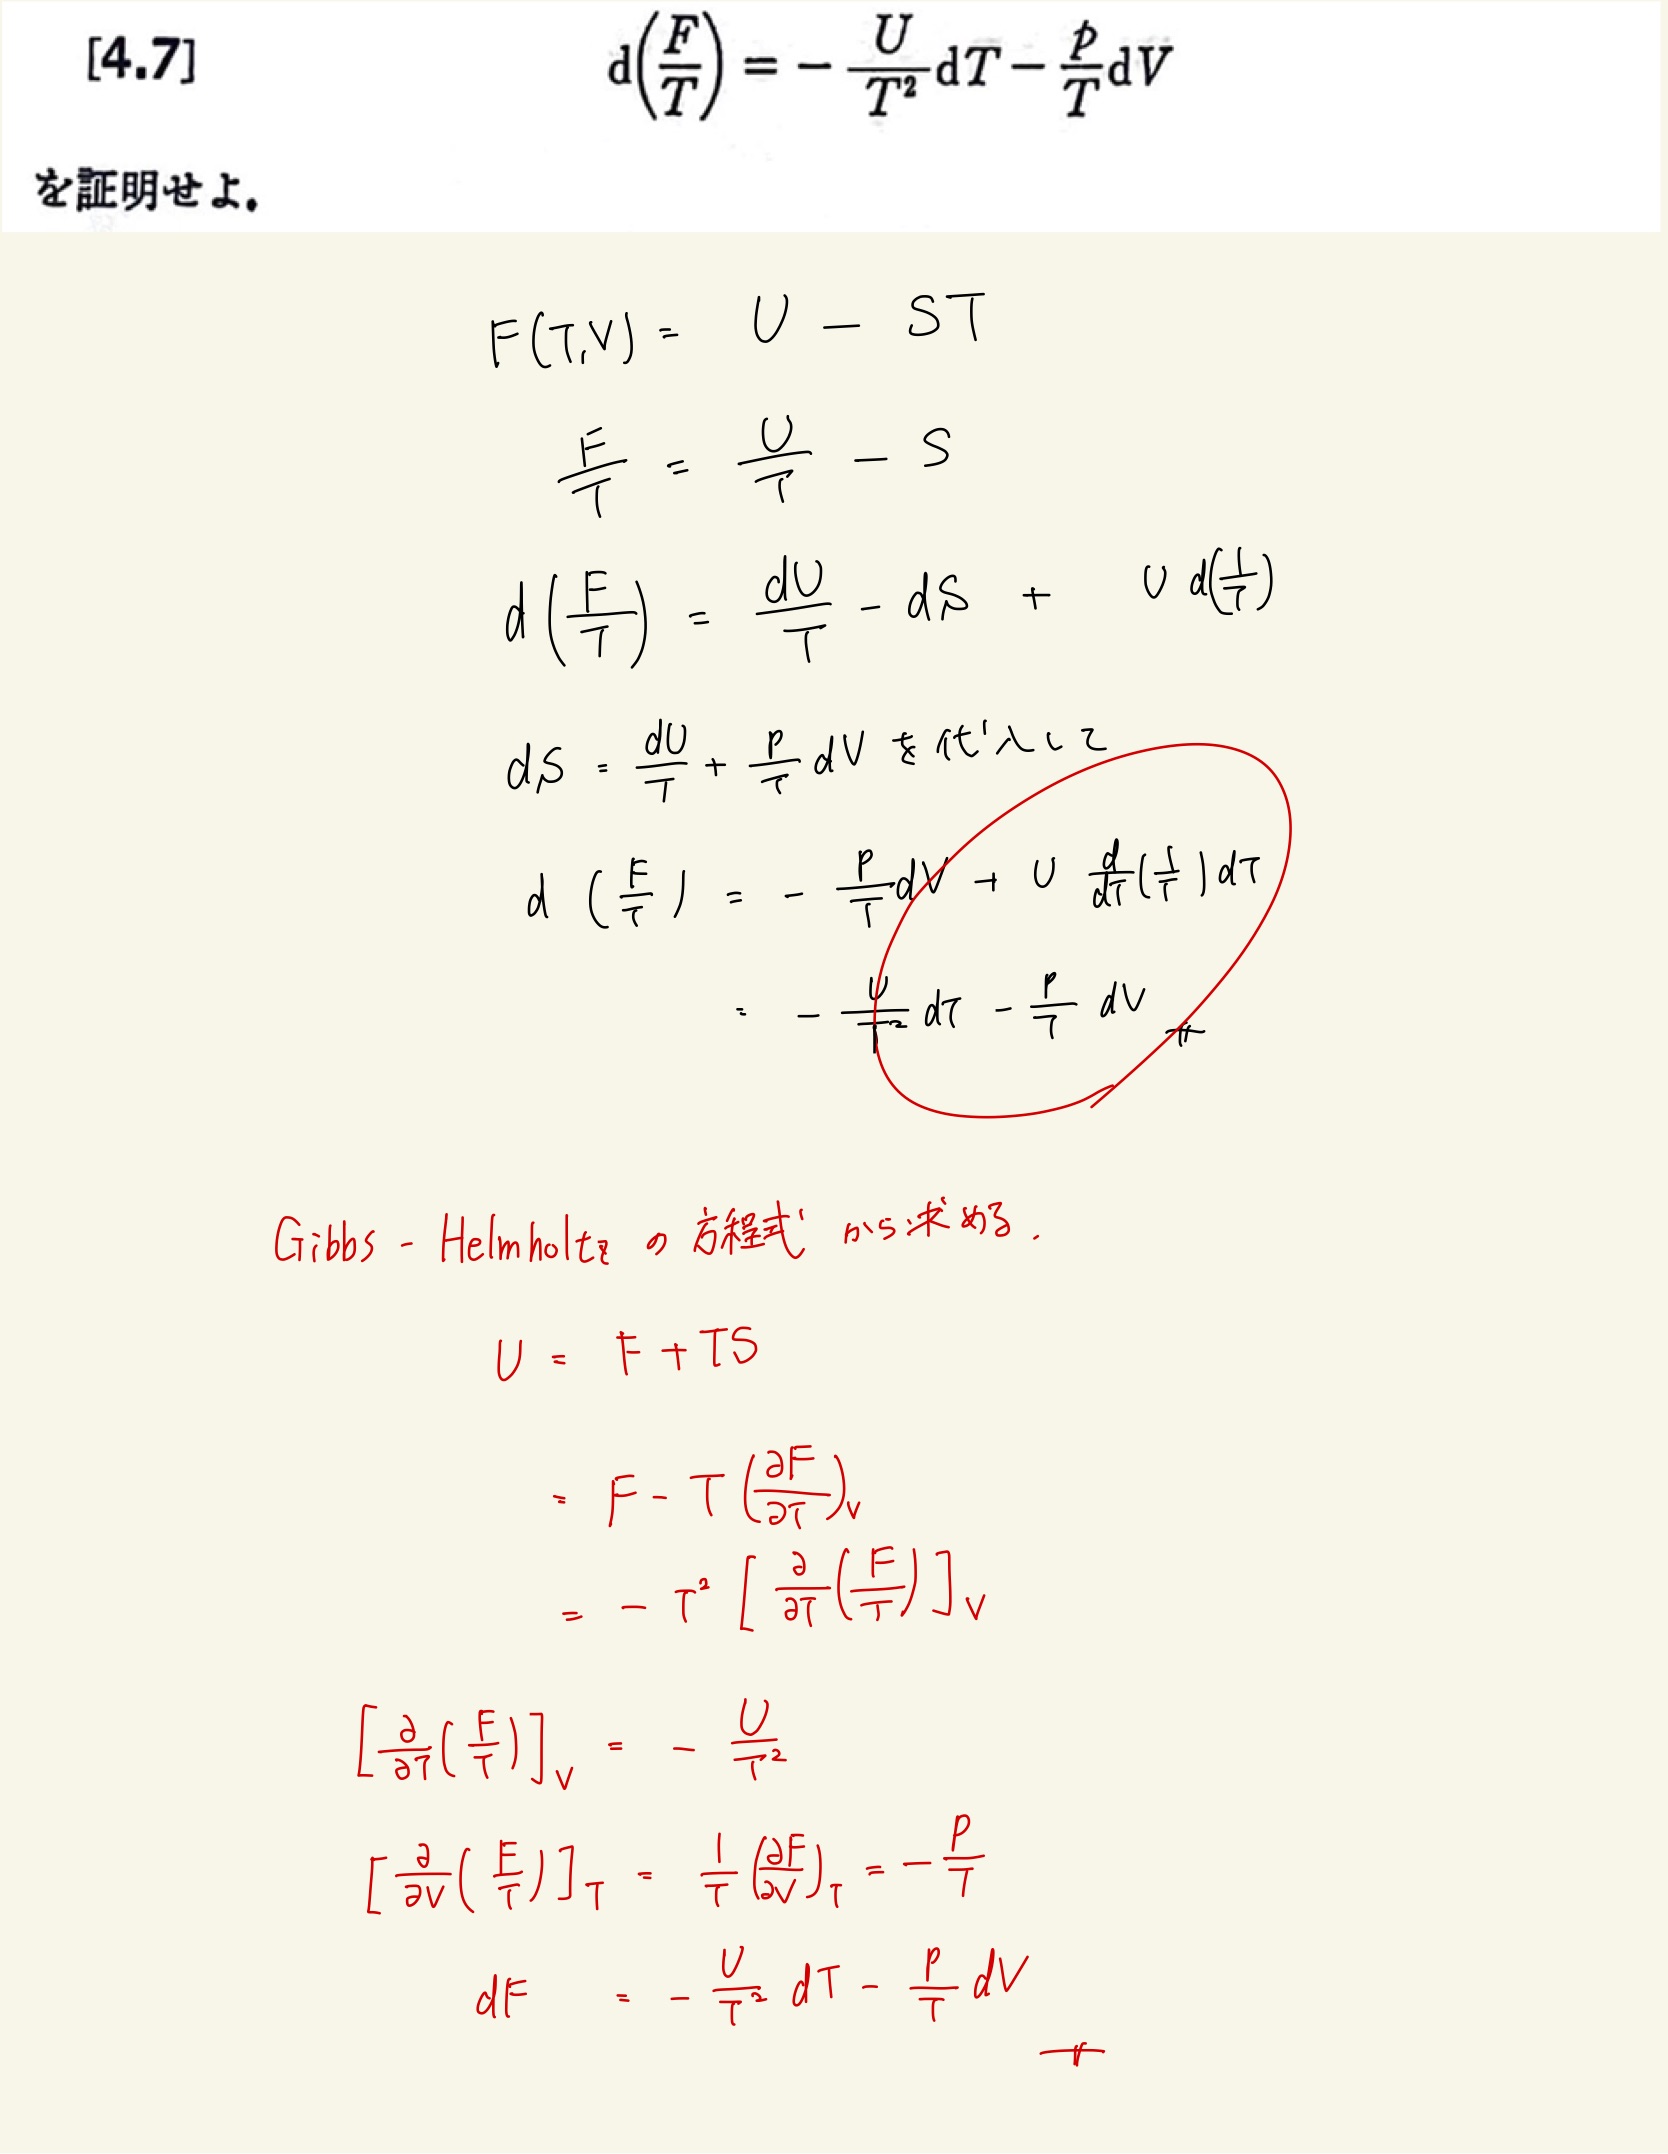 [4.7] d(F/T) = − U/T² dT − p/T dV
を証明せよ.
F(T,V) = U − ST
F/T = U/T − S
d(F/T) = dU/T − dS + U d(1/T)
dS = dU/T + P/T dV を代入して
d(F/T) = − P/T dV + U d/dT(1/T) dT
= − U/T² dT − P/T dV
Gibbs - Helmholtz の方程式から求める.
U = F + TS
= F − T(∂F/∂T)_V
= − T² [∂/∂T(F/T)]_V
[∂/∂T(F/T)]_V = − U/T²
[∂/∂V(F/T)]_T = 1/T (∂F/∂V)_T = − P/T
dF = − U/T² dT − P/T dV